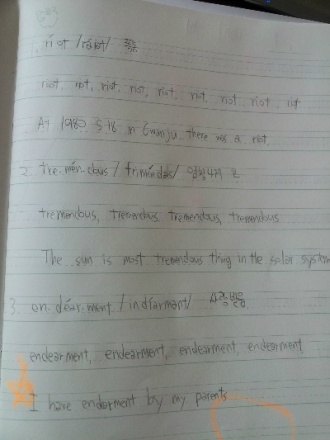 1. riot /ráiət/ 폭동
riot, riot, riot, riot, riot, riot, riot, riot, riot
At 1980 5 18 in Gwanju, there was a riot.
2. tre.mén.dous / triméndəs/ 엄청나게 큰
tremendous, tremendous, tremendous, tremendous
The sun is most tremendous thing in the solar system
3. en.déar.ment / indíərmənt/
endearment, endearment, endearment, endearment
I have endearment by my parents